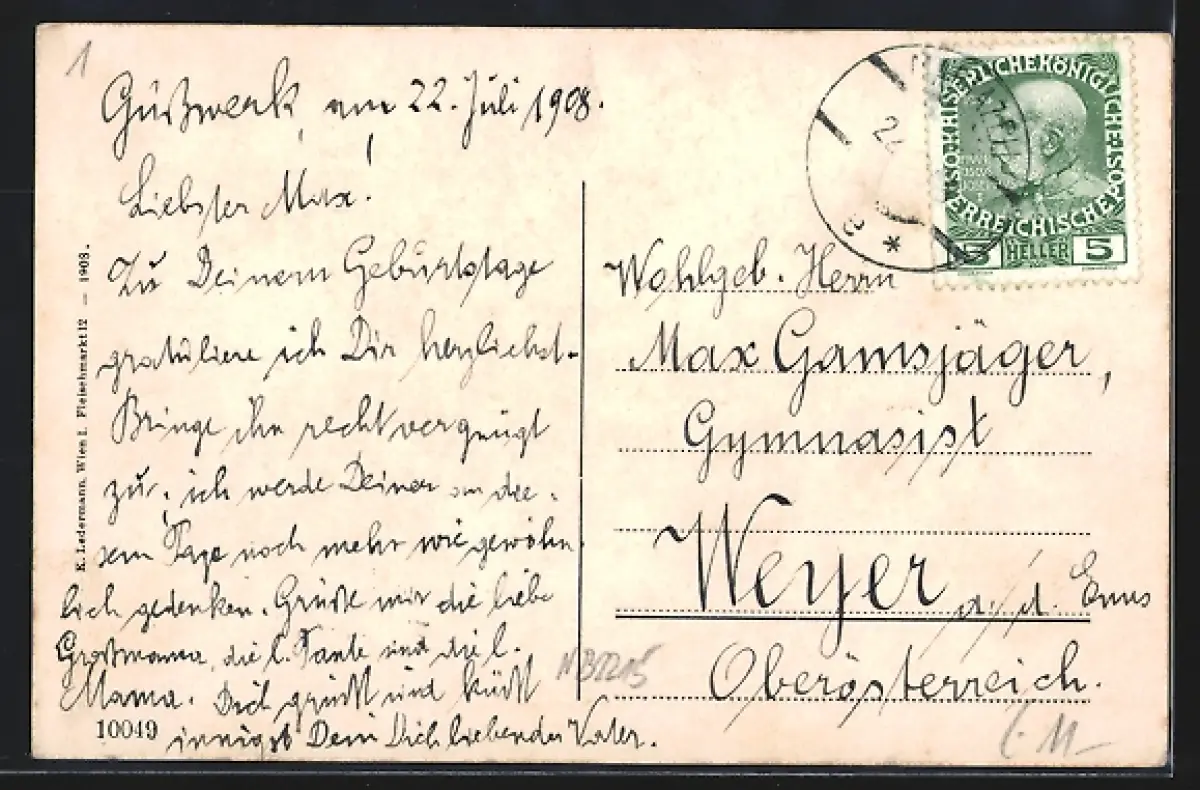 1
Gußwerk, am 22. Juli 1908.
Liebster Max!
Zu Deinem Geburtstage
gratuliere ich Dir herzlichst.
Bringe ihn recht vergnügt
zu, ich werde Deiner an die-
sem Tage noch mehr wie gewöhn
lich gedenken. Grüße mir die liebe
Großmama, die l. Tante und die l.
Mama. Dich grüßt und küßt
innigst Dein Dich liebender Vater.
10049
K. Ledermann, Wien I. Fleischmarkt 12 — 1908.
KAISERLICHEKÖNIGLICHEÖSTERREICHISCHEPOST
5 HELLER 5
e *
Wohlgeb. Herrn
Max Gamsjäger,
Gymnasist
Weyer a. d. Enns
Oberösterreich.